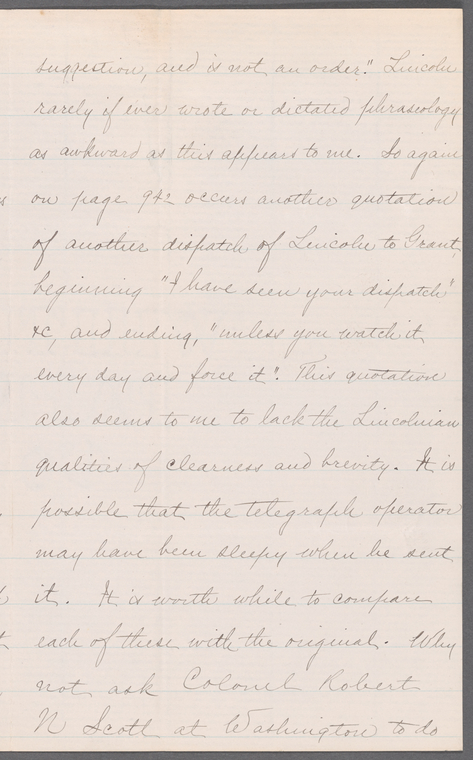 suggestion, and is not an order." Lincoln
rarely if ever wrote or dictated phraseology
as awkward as this appears to me. So again
on page 942 occurs another quotation
of another dispatch of Lincoln to Grant,
beginning "I have seen your dispatch"
&c, and ending, "unless you watch it
every day and force it". This quotation
also seems to me to lack the Lincolnian
qualities of clearness and brevity. It is
possible that the telegraph operator
may have been sleepy when he sent
it. It is worth while to compare
each of these with the original. Why
not ask Colonel Robert
N Scott at Washington to do